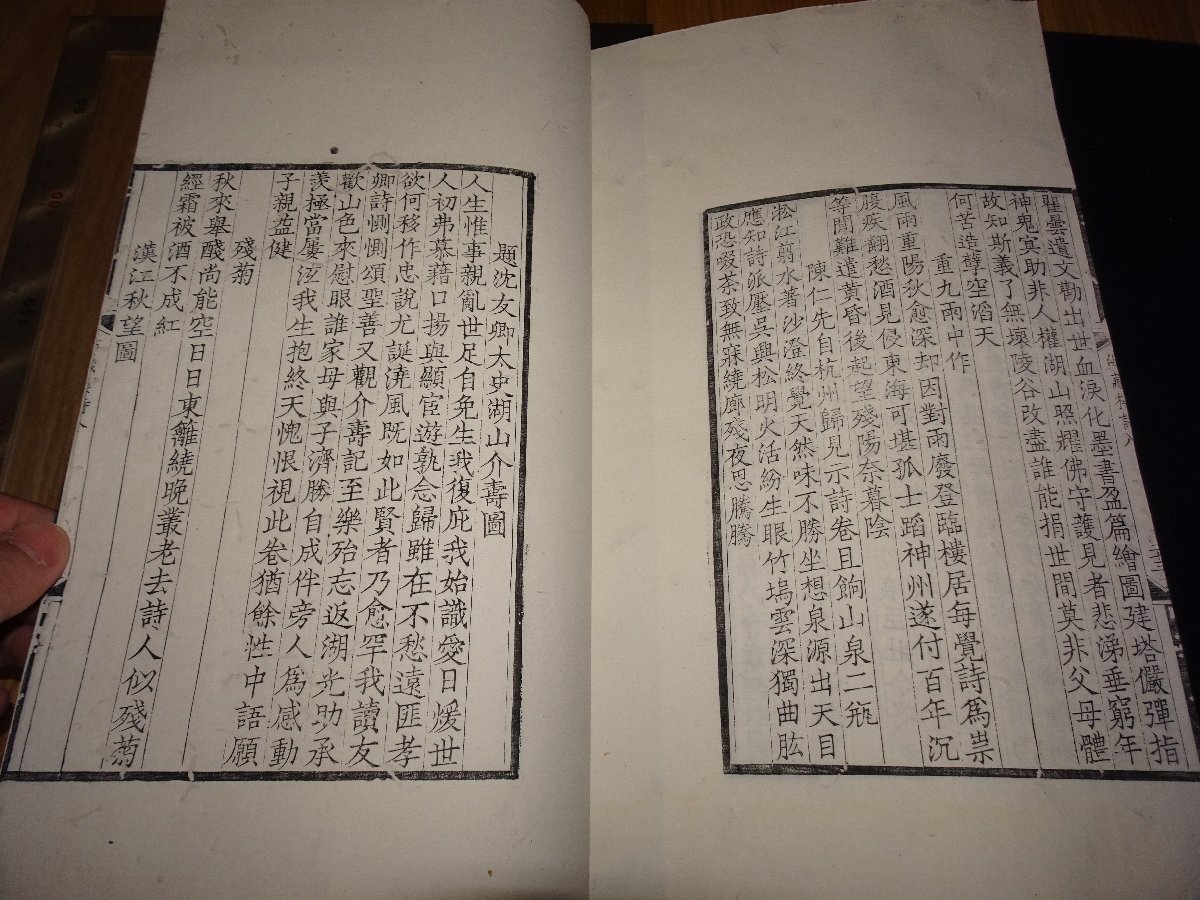 瞿曇遺文勸出世血淚化墨書盈篇繪圖建塔儼彈指
神鬼冥助非人權湖山照耀佛守護見者悲涕垂窮年
故知斯義了無壞陵谷改盡誰能捐世間莫非父母體
何苦造孽空滔天
重九雨中作
風雨重陽秋愈深却因對雨廢登臨樓居每覺詩為祟
腹疾翻愁酒見侵東海可堪孤士蹈神州遂付百年沉
等閒難遣黃昏後起望殘陽奈暮陰
陳仁先自杭州歸見示詩卷且餉山泉二瓶
淞江翦水著沙澄終覺天然味不勝坐想泉源出天目
應知詩派壓吳興松明火活紛生眼竹塢雲深獨曲肱
政恐啜茶致無寐繞廊殘夜思騰騰
題沈友卿太史湖山介壽圖
人生惟事親亂世足自免生我復庇我始識愛日煖世
人初弗慕藉口揚與顯宦遊孰念歸雖在不愁遠匪孝
欲何移作忠說尤誕澆風既如此賢者乃愈罕我讀友
卿詩惻惻頌聖善又觀介壽記至樂殆忘返湖光助承
歡山色來慰眼誰家母與子濟勝自成伴旁人為感動
羨極當屢泫我生抱終天愧恨視此卷猶餘性中語願
子親益健
殘菊
秋來舉醆尚能空日日東籬繞晚叢老去詩人似殘菊
經霜被酒不成紅
漢江秋望圖